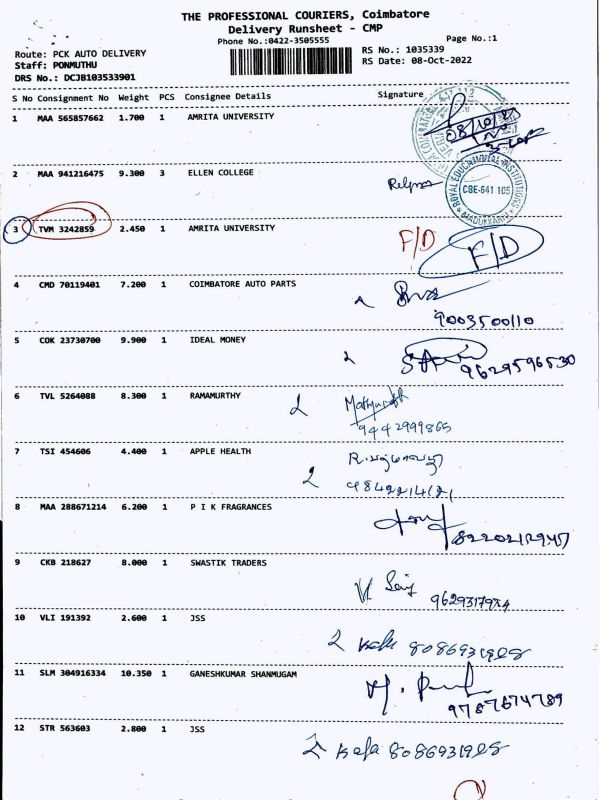 THE PROFESSIONAL COURIERS, Coimbatore
Delivery Runsheet - CMP
Phone No.:0422-3505555
Page No.:1
Route: PCK AUTO DELIVERY
RS No.: 1035339
Staff: PONMUTHU
RS Date: 08-Oct-2022
DRS No.: DCJB103533901
S No Consignment No Weight PCS Consignee Details Signature
1 MAA 565857662 1.700 1 AMRITA UNIVERSITY
08/10/22
2 MAA 941216475 9.300 3 ELLEN COLLEGE
ROYAL EDUCATIONAL INSTITUTIONS
CBE-641 105
3 TVM 3242859 2.450 1 AMRITA UNIVERSITY
F/D F/D
4 CMD 70119401 7.200 1 COIMBATORE AUTO PARTS
9003500110
5 COK 23730700 9.900 1 IDEAL MONEY
9629596530
6 TVL 5264088 8.300 1 RAMAMURTHY
9442999865
7 TSI 454606 4.400 1 APPLE HEALTH
9842214121
8 MAA 288671214 6.200 1 P I K FRAGRANCES
9 CKB 218627 8.000 1 SWASTIK TRADERS
10 VLI 191392 2.600 1 JSS
Kala
11 SLM 304916334 10.350 1 GANESHKUMAR SHANMUGAM
9787674789
12 STR 563603 2.800 1 JSS
Kala